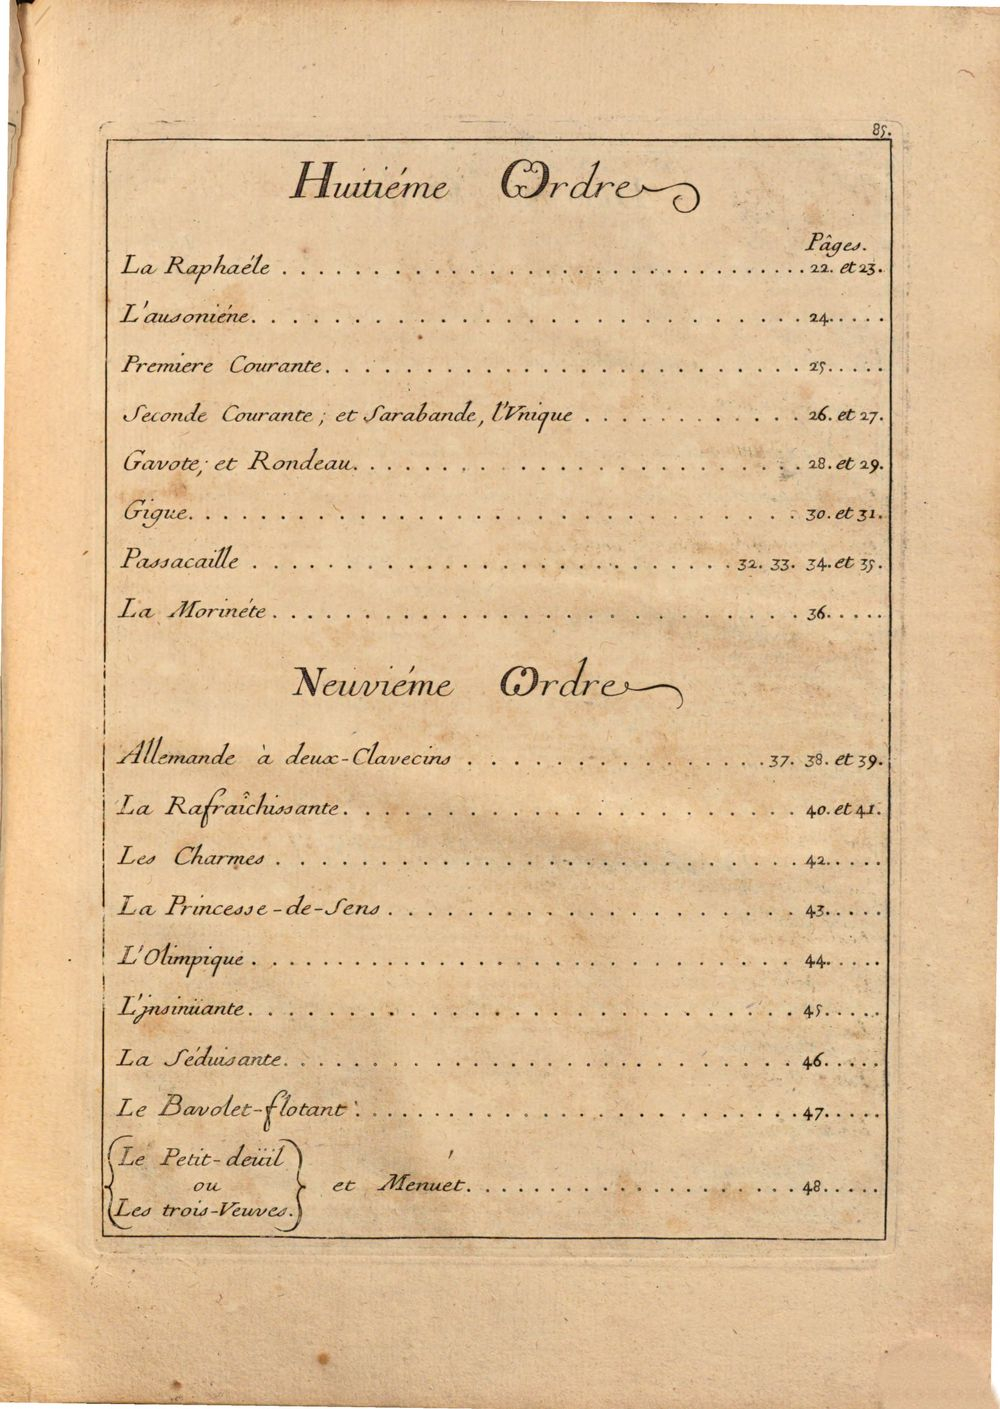 85.
Huitiéme Ordre
Pâges.
La Raphaéle . . . . . . . . . . . . . . . . . . . . . . . . . . . . . 22. et 23.
L'ausoniéne. . . . . . . . . . . . . . . . . . . . . . . . . . . . . 24. . . . .
Premiere Courante. . . . . . . . . . . . . . . . . . . . . . . . . . 25. . . . .
Seconde Courante ; et Sarabande, l'Vnique . . . . . . . . . . . . 26. et 27.
Gavote; et Rondeau. . . . . . . . . . . . . . . . . . . . . . . . . 28. et 29.
Gigue. . . . . . . . . . . . . . . . . . . . . . . . . . . . . . . . . . 30. et 31.
Passacaille . . . . . . . . . . . . . . . . . . . . . . . . . . . 32. 33. 34. et 35.
La Morinéte . . . . . . . . . . . . . . . . . . . . . . . . . . . . . 36. . . . .
Neuviéme Ordre
Allemande à deux-Clavecins . . . . . . . . . . . . . . . . 37. 38. et 39.
La Rafraîchissante. . . . . . . . . . . . . . . . . . . . . . . . . . 40. et 41.
Les Charmes . . . . . . . . . . . . . . . . . . . . . . . . . . . . . 42. . . . .
La Princesse-de-Sens . . . . . . . . . . . . . . . . . . . . . . . 43. . . . .
L'Olimpique . . . . . . . . . . . . . . . . . . . . . . . . . . . . . . 44. . . . .
L'jnsinüante. . . . . . . . . . . . . . . . . . . . . . . . . . . . . . 45. . . . .
La Séduisante. . . . . . . . . . . . . . . . . . . . . . . . . . . . . 46. . . . .
Le Bavolet-flotant . . . . . . . . . . . . . . . . . . . . . . . . . . 47. . . . .
Le Petit-deüil
ou
et Menuet. . . . . . . . . . . . . . . . . . . 48. . . . .
Les trois-Veuves.